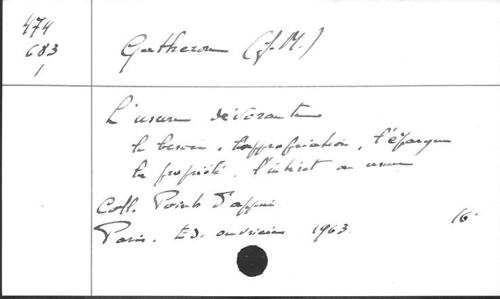 474
683
1
Gatheron (J. M.)
L'usure dévorante
le besoin, l'appropriation, l'épargne
la propriété, l'intérêt ou usure
Coll. Points d'appui
Paris. Ed. ouvrières 1963.
16°